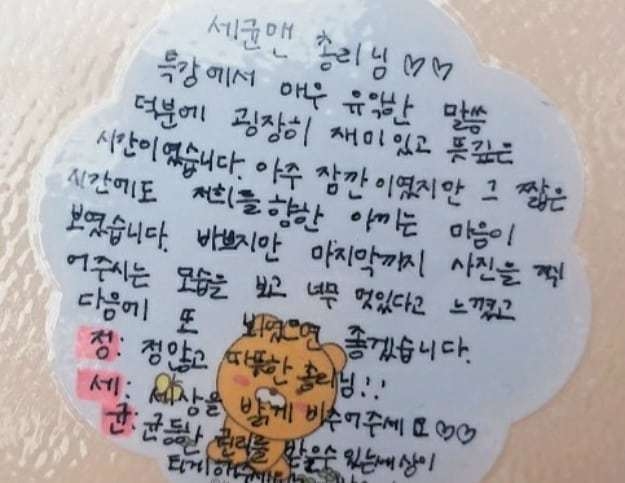 세균맨 총리님 ♡♡
특강에서 매우 유익한 말씀
덕분에 굉장히 재미있고 뜻깊은
시간이였습니다. 아주 잠깐이였지만 그 짧은
시간에도 저희를 향한 아끼는 마음이
보였습니다. 바쁘지만 마지막까지 사진을 찍
어주시는 모습을 보고 너무 멋있다고 느꼈고
다음에 또 뵈었으면 좋겠습니다.
정: 정많고 따뜻한 총리님!!
세: 세상을 밝게 비추어주세요♡♡
균: 균등한 권리를 받을수 있는 세상이
되게